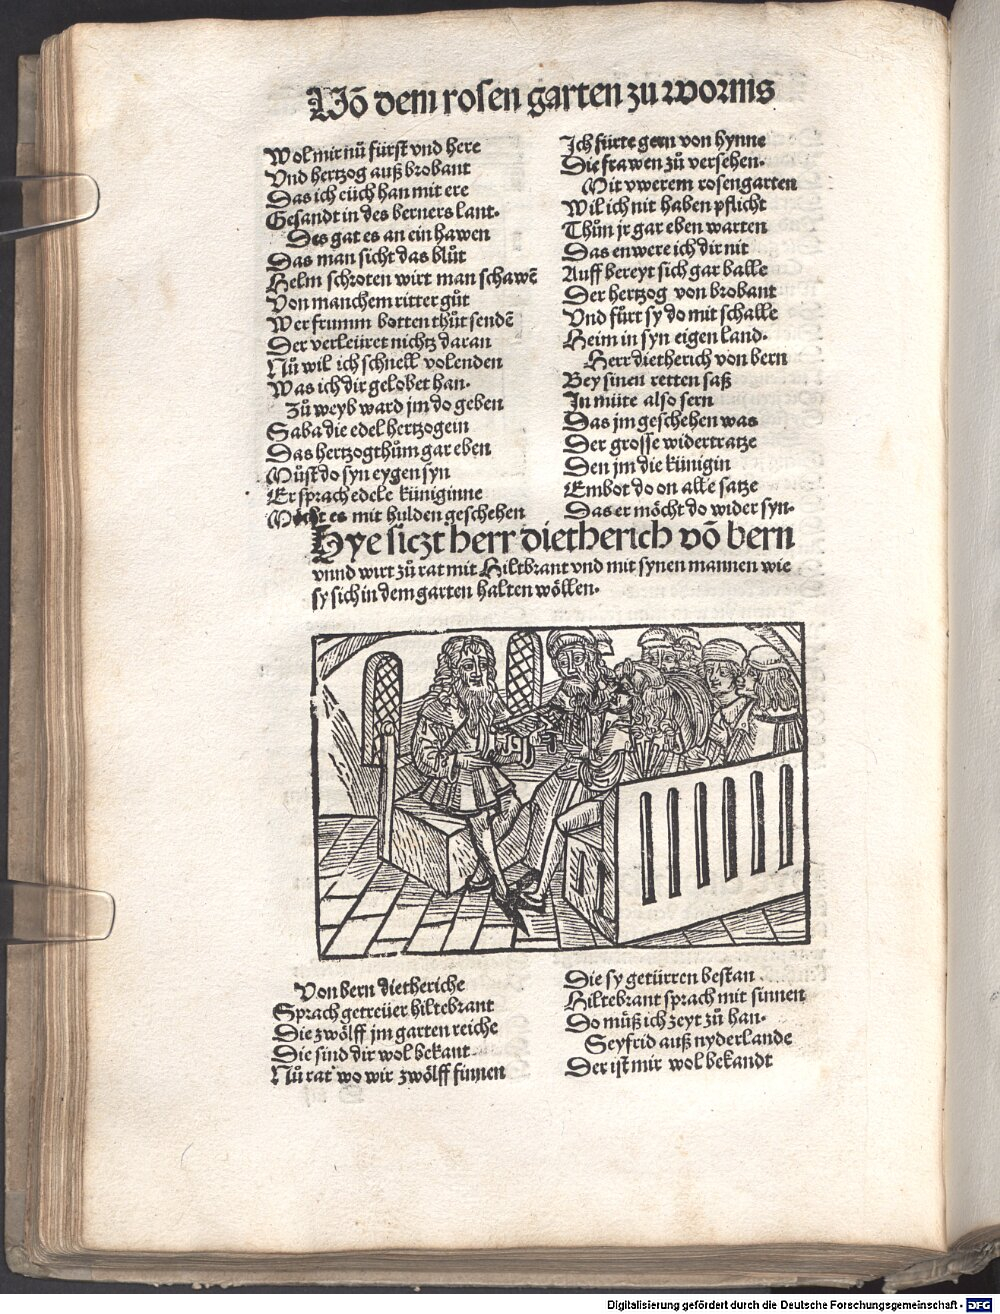 Võ dem rosen garten zu worms
Wol mir nü fürst vnd here
Vnd hertzog auß brobant
Das ich eüch han mit ere
Gesandt in des berners lant.
Des gat es an ein hawen
Das man sicht das blůt
Helm schroten wirt man schawẽ
Von manchem ritter gůt
Wer frumm botten thůt sendẽ
Der verleüret nichtz daran
Nů wil ich schnell volenden
Was ich dir gelobet han.
Zů weyb ward jm do geben
Saba die edel hertzogein
Das hertzogthům gar eben
Můst do syn eygen syn
Er sprach edele küniginne
Möcht es mit hulden geschehen
Ich fürte gern von hynne
Die frawen zů versehen.
Mit vwerem rosengarten
Wil ich nit haben pflicht
Thůn jr gar eben warten
Das enwere ich dir nit
Auff bereyt sich gar balle
Der hertzog von brobant
Vnd fürt sy do mit schalle
Heim in syn eigen land.
Herr dietherich von bern
Bey sinen retten saß
In müte also sern
Das jm geschehen was
Der grosse widertratze
Den jm die künigin
Embot do on alle satze
Das er möcht do wider syn.
Hye siczt herr dietherich võ bern
vnnd wirt zů rat mit Hiltbrant vnd mit synen mannen wie
sy sich in dem garten halten wöllen.
Von bern dietheriche
Sprach getreüer hiltebrant
Die zwölff jm garten reiche
Die sind dir wol bekant
Nů rat wo wir zwölff finnen
Die sy getürren bestan
Hiltebrant sprach mit sinnen
Do můß ich zeyt zů han.
Seyfrid auß nyderlande
Der ist mir wol bekandt
Digitalisierung gefördert durch die Deutsche Forschungsgemeinschaft - DFG